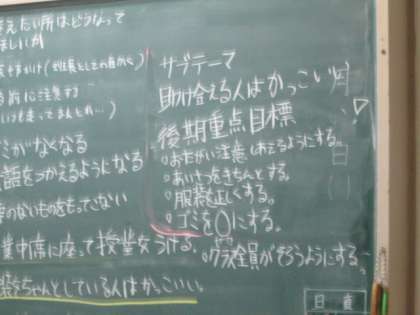 えたい所はどうなって
ほしいか
前に注意する
がなくなる
語をつかえるようになる
のないものをもってこない
業中席に座って授業をうける。
ちゃんとしている人はかっこいい。
サブテーマ
助け合える人はかっこいい
後期重点目標
。おたがい注意しあえるようにする。
。あいさつをきちんとする。
。服装を正しくする。
。ゴミを0にする。
。クラス全員がそろうようにする。
月
日
日直